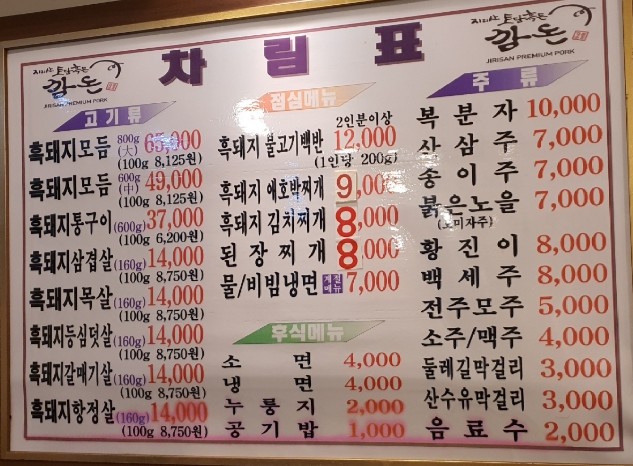 지리산 토담흑돈
깜돈
JIRISAN PREMIUM PORK
차림표
지리산 토담흑돈
깜돈
JIRISAN PREMIUM PORK
고기류
흑돼지모듬 800g (大) 65,000
(100g 8,125원)
흑돼지모듬 600g (中) 49,000
(100g 8,125원)
흑돼지통구이 (600g) 37,000
(100g 6,200원)
흑돼지삼겹살 (160g) 14,000
(100g 8,750원)
흑돼지목살 (160g) 14,000
(100g 8,750원)
흑돼지등심덧살 (160g) 14,000
(100g 8,750원)
흑돼지갈매기살 (160g) 14,000
(100g 8,750원)
흑돼지항정살 (160g) 14,000
(100g 8,750원)
점심메뉴
2인분이상
흑돼지 불고기백반 12,000
(1인당 200g)
흑돼지 애호박찌개 9,000
흑돼지 김치찌개 8,000
된장찌개 8,000
물/비빔냉면 계절메뉴 7,000
후식메뉴
소면 4,000
냉면 4,000
누룽지 2,000
공기밥 1,000
주류
복분자 10,000
산삼주 7,000
송이주 7,000
붉은노을 7,000
(오미자주)
황진이 8,000
백세주 8,000
전주모주 5,000
소주/맥주 4,000
둘레길막걸리 3,000
산수유막걸리 3,000
음료수 2,000